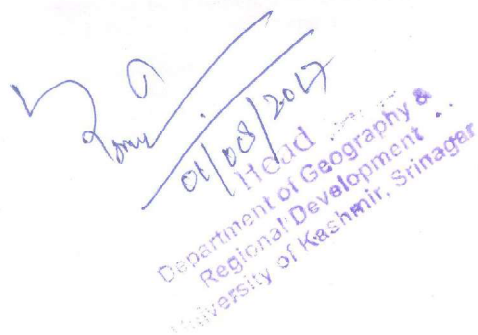 01/08/2017
Head
Department of Geography &
Regional Development
University of Kashmir, Srinagar